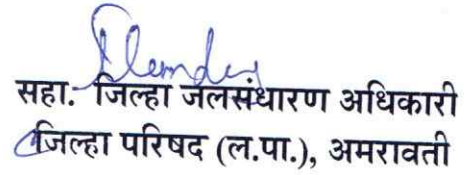 सहा. जिल्हा जलसंधारण अधिकारी
जिल्हा परिषद (ल.पा.), अमरावती